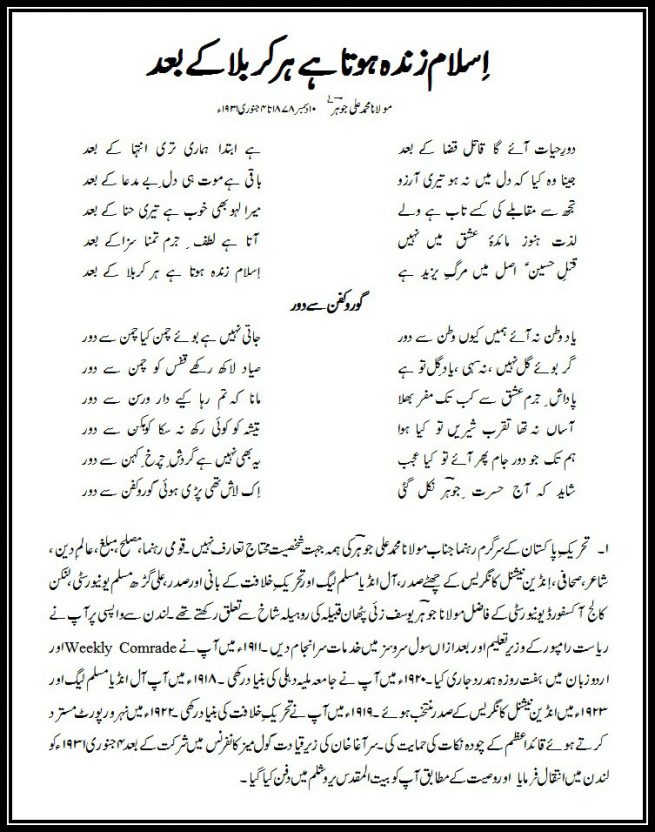 اِسلام زندہ ہوتا ہے ہر کربلا کے بعد
مولانا محمد علی جوہرؔ ۱ ۱۰ دسمبر ۱۸۷۸ تا ۴ جنوری ۱۹۳۱ء
دورِ حیات آئے گا قاتل قضا کے بعد ہے ابتدا ہماری تری انتہا کے بعد
جینا وہ کیا کہ دل میں نہ ہو تیری آرزو باقی ہے موت ہی دلِ بے مدعا کے بعد
تجھ سے مقابلے کی کسے تاب ہے ولے میرا لہو بھی خوب ہے تیری حنا کے بعد
لذت ہنوز مائدۂ عشق میں نہیں آتا ہے لطفِ جرمِ تمنا سزا کے بعد
قتلِ حسینؑ اصل میں مرگِ یزید ہے اِسلام زندہ ہوتا ہے ہر کربلا کے بعد
گور و کفن سے دور
یادِ وطن نہ آئے ہمیں کیوں وطن سے دور جاتی نہیں ہے بوئے چمن کیا چمن سے دور
گر بوئے گل نہیں، نہ سہی، یادِ گل تو ہے صیاد لاکھ رکھے قفس کو چمن سے دور
پاداشِ جرمِ عشق سے کب تک مفر بھلا مانا کہ تم رہا کیے دار و رسن سے دور
آساں نہ تھا تقربِ شیریں تو کیا ہوا تیشہ کو کوئی رکھ نہ سکا کوہکن سے دور
ہم تک جو دورِ جام پھر آئے تو کیا عجب یہ بھی نہیں ہے گردشِ چرخِ کہن سے دور
شاید کہ آج حسرتِ جوہرؔ نکل گئی اِک لاش تھی پڑی ہوئی گور و کفن سے دور
۱۔ تحریکِ پاکستان کے سرگرم رہنما جناب مولانا محمد علی جوہرؔ کی ہمہ جہت شخصیت محتاجِ تعارف نہیں۔ قومی رہنما، مصلح، مبلغ، عالمِ دین،
شاعر، صحافی، اِنڈین نیشنل کانگریس کے چھٹے صدر، آل انڈیا مسلم لیگ اور تحریکِ خلافت کے بانی اور صدر، علی گڑھ مسلم یونیورسٹی، لنکن
کالج آکسفورڈ یونیورسٹی کے فاضل مولانا جوہرؔ یوسف زئی پٹھان قبیلہ کی روہیلہ شاخ سے تعلق رکھتے تھے۔ لندن سے واپسی پر آپ نے
ریاست رامپور کے وزیرِ تعلیم اور بعد ازاں سول سروسز میں خدمات سرانجام دیں۔ ۱۹۱۱ء میں آپ نے Weekly Comrade اور
اردو زبان میں ہفت روزہ ہمدرد جاری کیا۔ ۱۹۲۰ء میں آپ نے جامعہ ملیہ دہلی کی بنیاد رکھی۔ ۱۹۱۸ء میں آپ آل انڈیا مسلم لیگ اور
۱۹۲۳ء میں انڈین نیشنل کانگریس کے صدر منتخب ہوئے۔ ۱۹۱۹ء میں آپ نے تحریکِ خلافت کی بنیاد رکھی۔ ۱۹۲۲ء میں نہرو رپورٹ مسترد
کرتے ہوئے قائد اعظم کے چودہ نکات کی حمایت کی۔ سر آغا خان کی زیرِ قیادت گول میز کانفرنس میں شرکت کے بعد ۴ جنوری ۱۹۳۱ء کو
لندن میں انتقال فرمایا اور وصیت کے مطابق آپ کو بیت المقدس یروشلم میں دفن کیا گیا۔